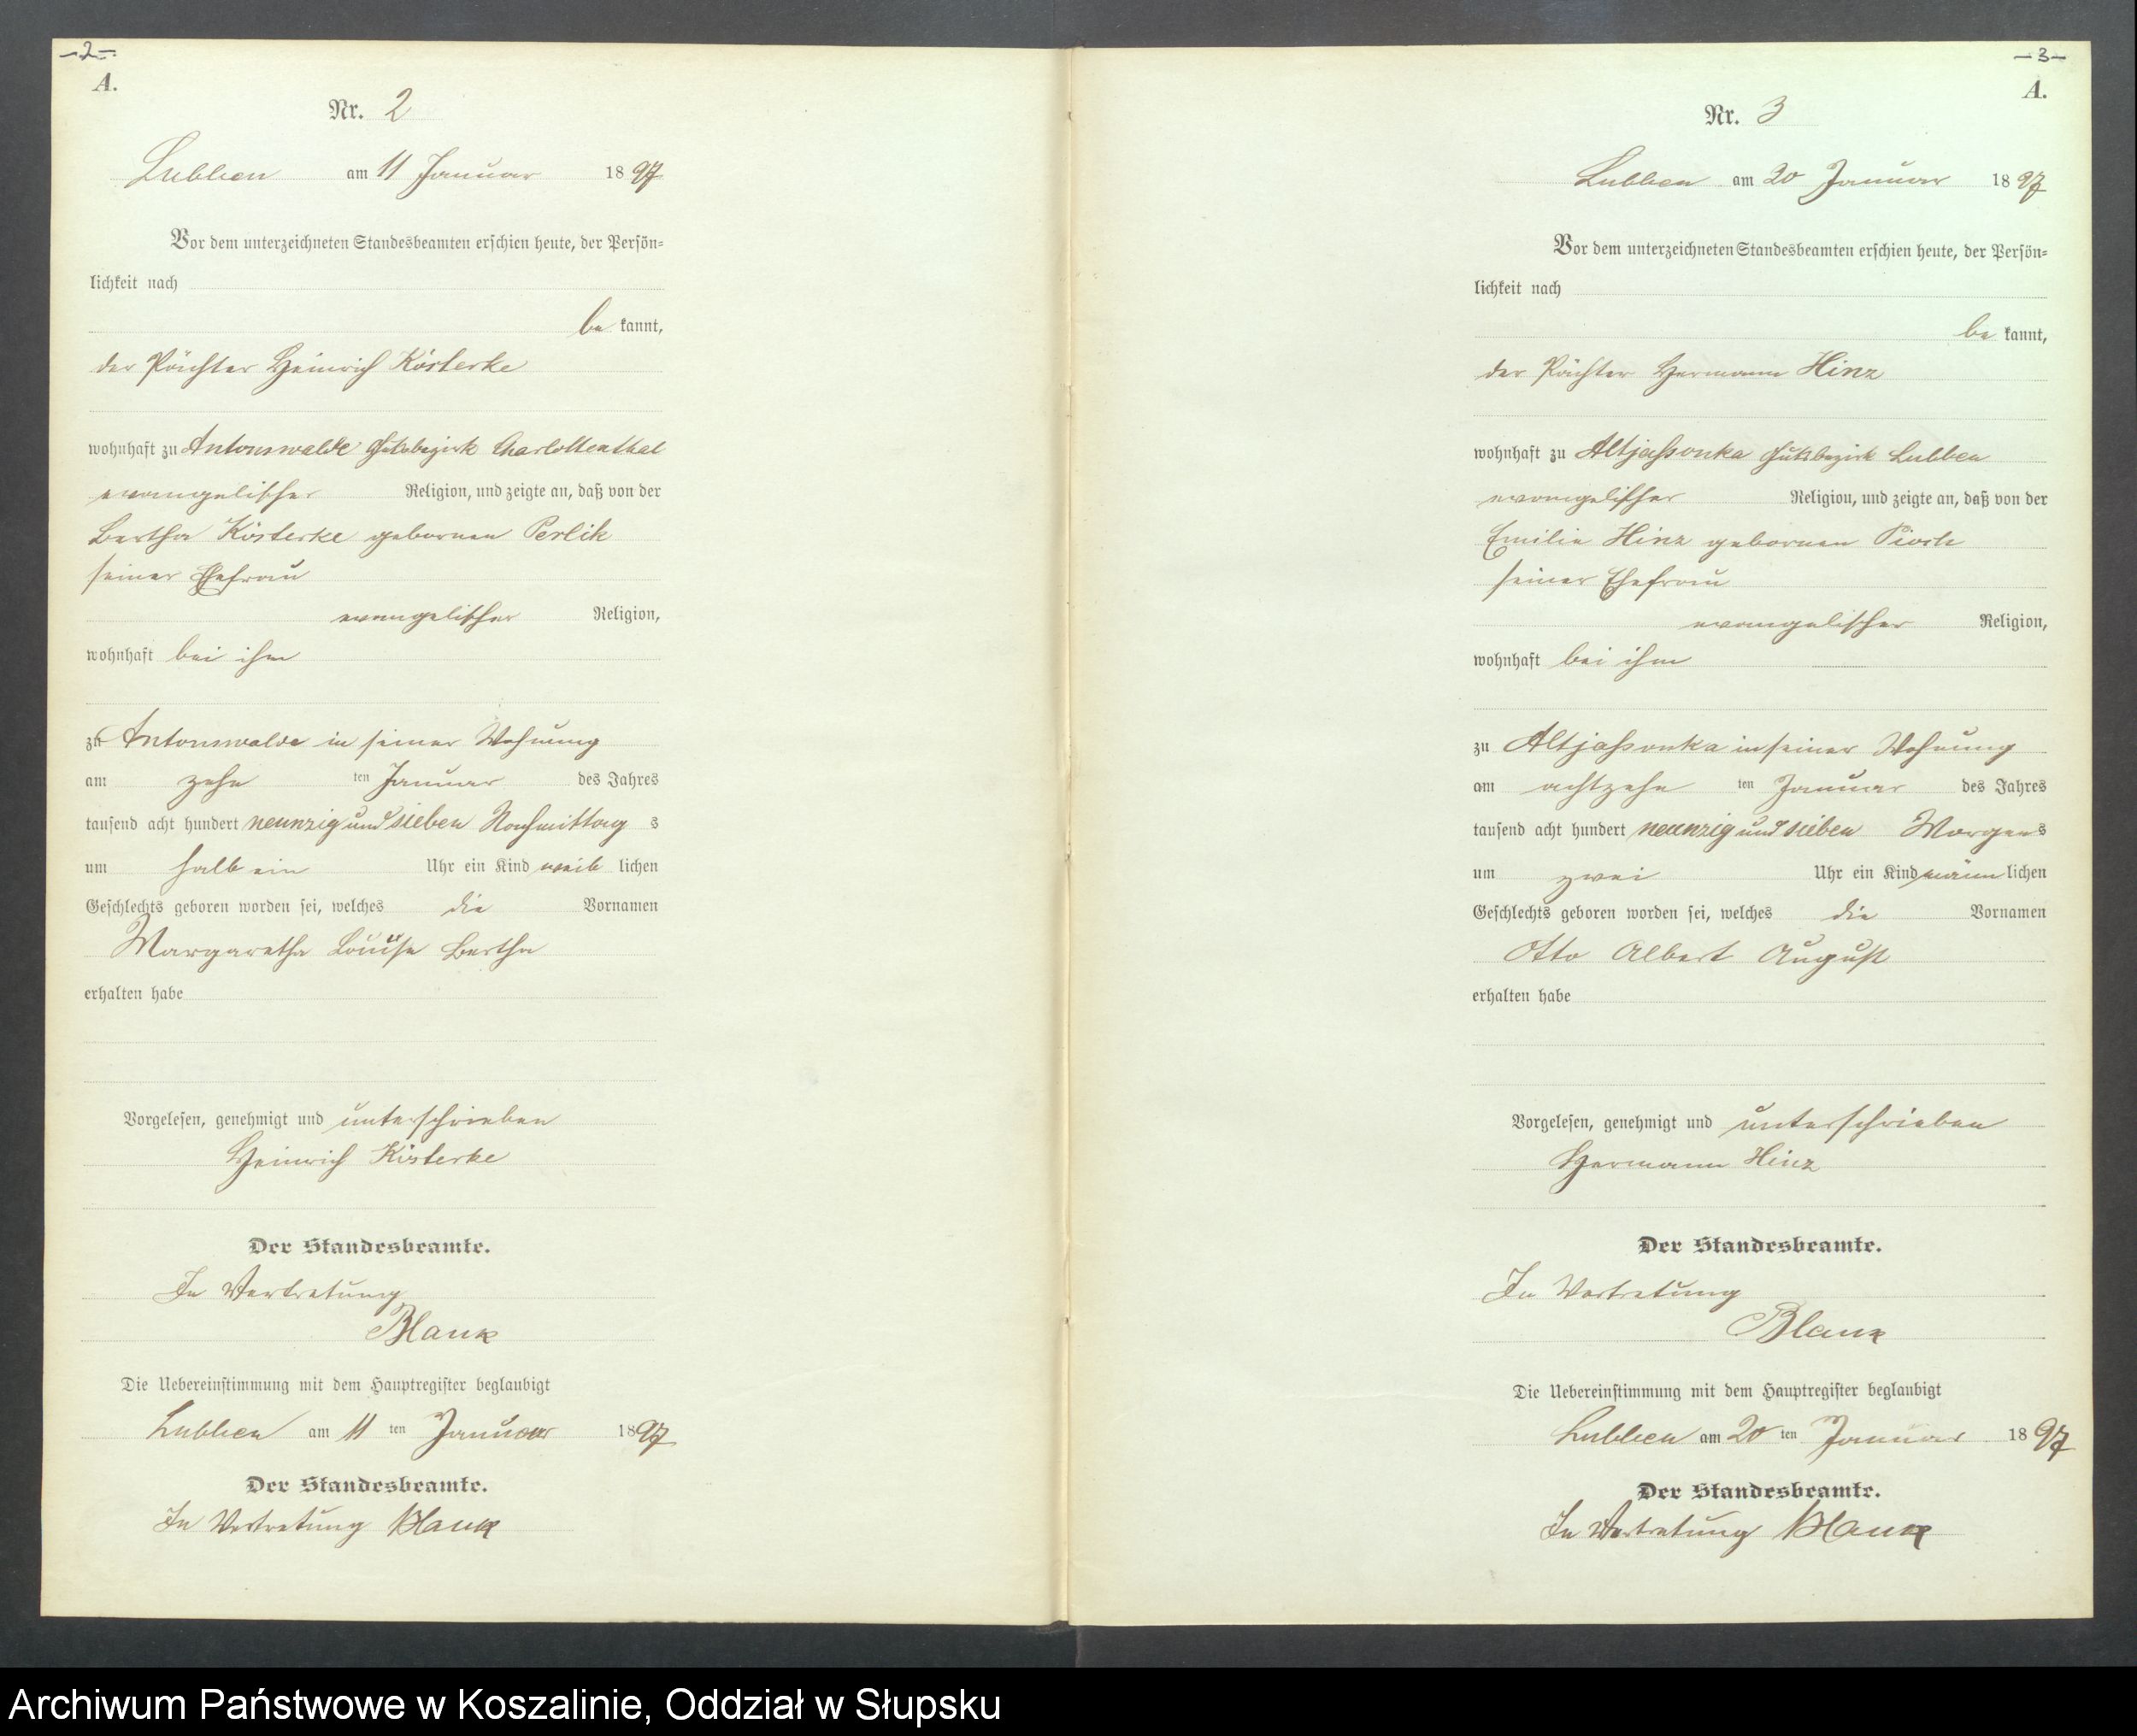 -2-
A.
Nr. 2
Lubben am 11 Januar 1897
Vor dem unterzeichneten Standesbeamten erschien heute, der Persön-
lichkeit nach
be kannt,
der Pächter Heinrich Kösterke
wohnhaft zu Antonswalde Gutsbezirk Charlottenthal
evangelischer Religion, und zeigte an, daß von der
Bertha Kösterke gebornen Perlik
seiner Ehefrau
evangelischer Religion,
wohnhaft bei ihm
zu Antonswalde in seiner Wohnung
am zehn ten Januar des Jahres
tausend acht hundert neunzig und sieben Nachmittag s
um halb ein Uhr ein Kind weib lichen
Geschlechts geboren worden sei, welches die Vornamen
Margaretha Louise Bertha
erhalten habe
Vorgelesen, genehmigt und unterschrieben
Heinrich Kösterke
Der Standesbeamte.
In Vertretung
Blank
Die Uebereinstimmung mit dem Hauptregister beglaubigt
Lubben am 11 ten Januar 1897
Der Standesbeamte.
In Vertretung Blank
-3-
A.
Nr. 3
Lubben am 20 Januar 1897
Vor dem unterzeichneten Standesbeamten erschien heute, der Persön-
lichkeit nach
be kannt,
der Pächter Hermann Hinz
wohnhaft zu Altjassonka Gutsbezirk Lubben
evangelischer Religion, und zeigte an, daß von der
Emilie Hinz gebornen
seiner Ehefrau
evangelischer Religion,
wohnhaft bei ihm
zu Altjassonka in seiner Wohnung
am achtzehn ten Januar des Jahres
tausend acht hundert neunzig und sieben Morgens
um zwei Uhr ein Kind männ lichen
Geschlechts geboren worden sei, welches die Vornamen
Otto Albert August
erhalten habe
Vorgelesen, genehmigt und unterschrieben
Hermann Hinz
Der Standesbeamte.
In Vertretung
Blank
Die Uebereinstimmung mit dem Hauptregister beglaubigt
Lubben am 20 ten Januar 1897
Der Standesbeamte.
In Vertretung Blank
Archiwum Państwowe w Koszalinie, Oddział w Słupsku